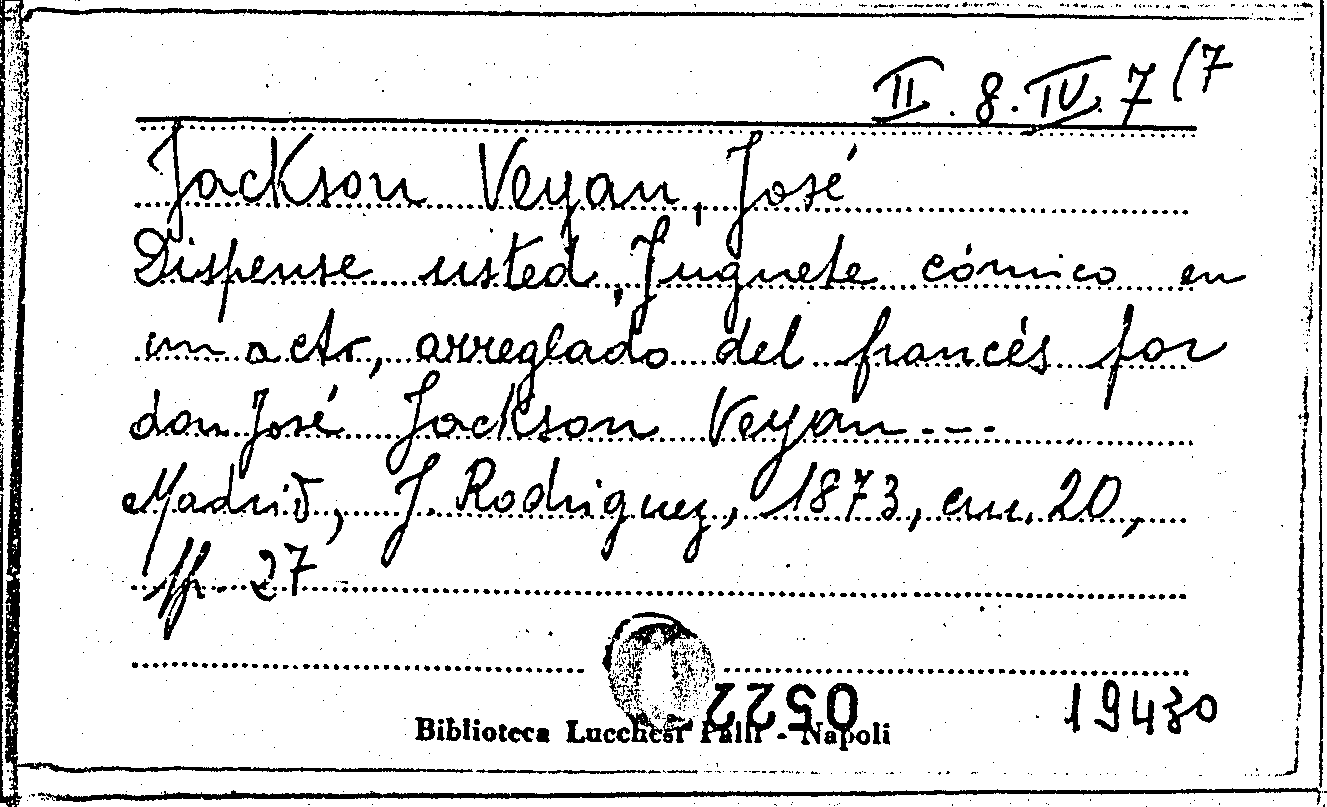 II. 8. IV. 7 (7
Jackson Veyan, José
Dispense usted, Juguete cómico en
un acto, arreglado del francés por
don José Jackson Veyan ---
Madrid, J. Rodriguez, 1873, cm. 20,
pp. 27
0522
19430
Biblioteca Lucchesi Palli - Napoli